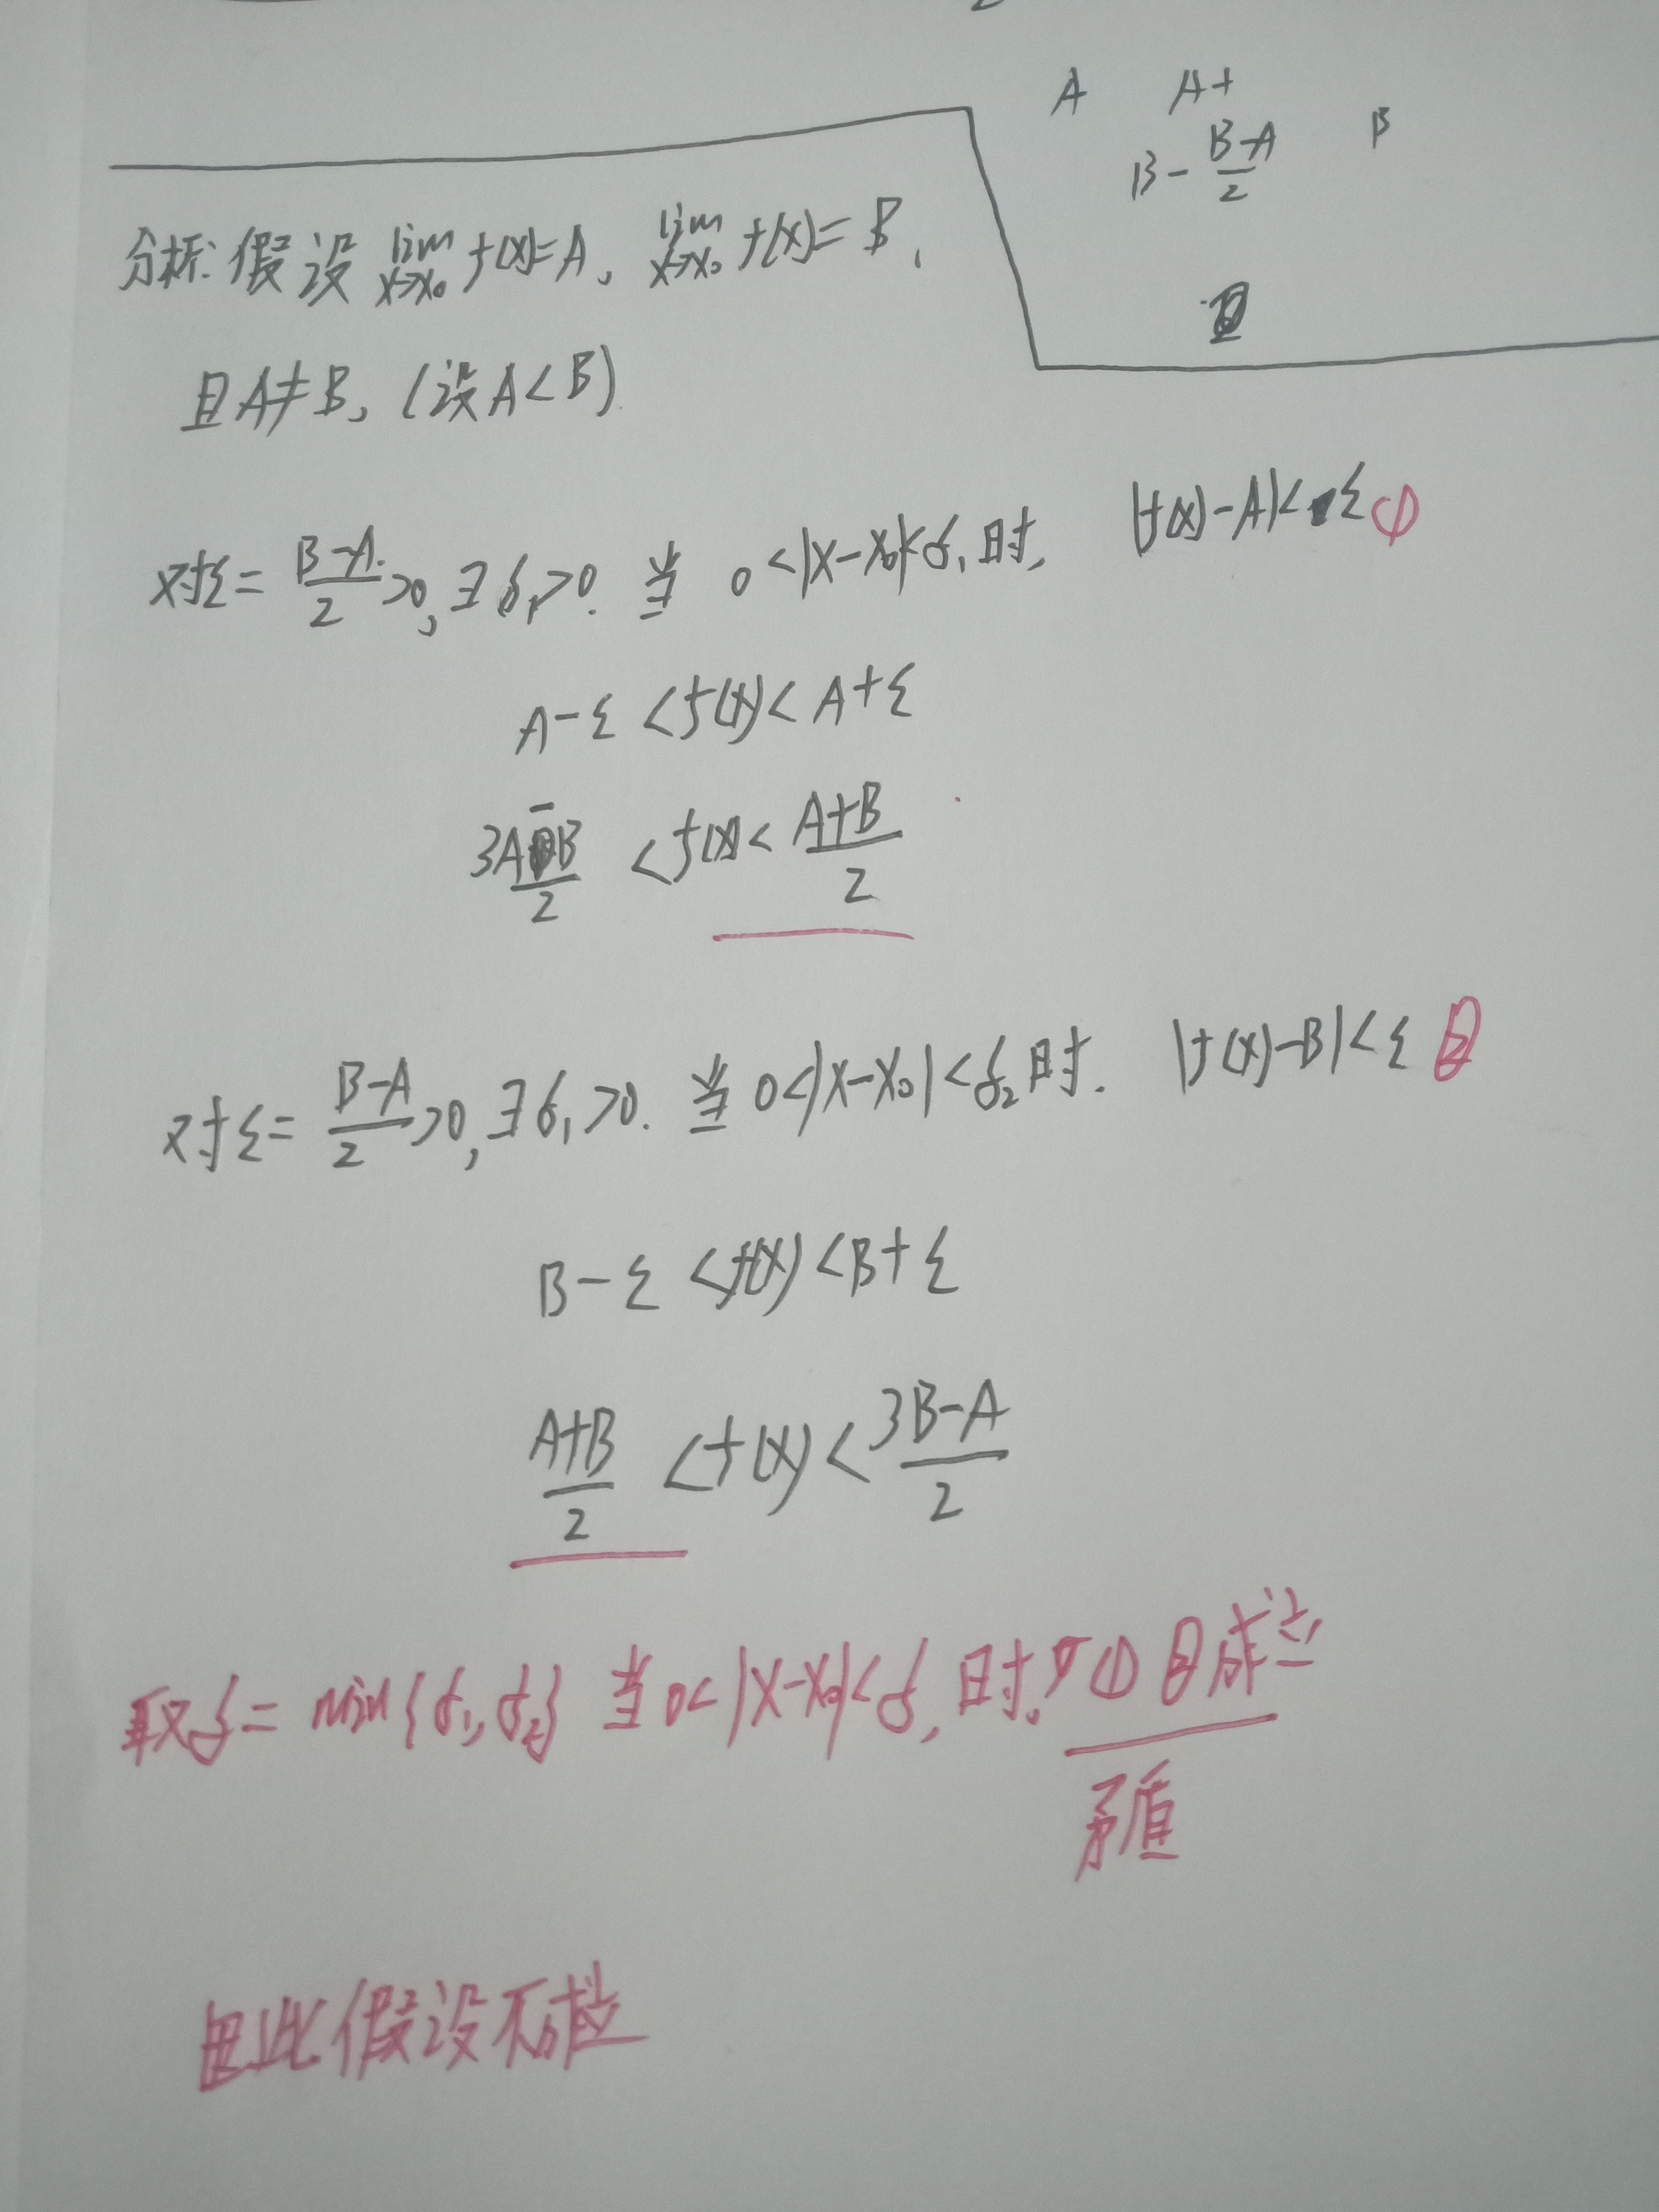 A A+
B-\frac{B-A}{2} B
分析: 假设 \lim_{x→x_0} f(x)=A, \lim_{x→x_0} f(x)=B,
且A≠B, (设A<B)
对ε=\frac{B-A}{2}>0, ∃δ_1>0. 当 0<|x-x_0|<δ_1时, |f(x)-A|<ε ①
A-ε<f(x)<A+ε
\frac{3A-B}{2}<f(x)<\frac{A+B}{2}
对ε=\frac{B-A}{2}>0, ∃δ_1>0. 当0<|x-x_0|<δ_2时. |f(x)-B|<ε ②
B-ε<f(x)<B+ε
\frac{A+B}{2}<f(x)<\frac{3B-A}{2}
取δ=min{δ_1,δ_2} 当0<|x-x_0|<δ,时, ①②成立
矛盾
因此假设不成立